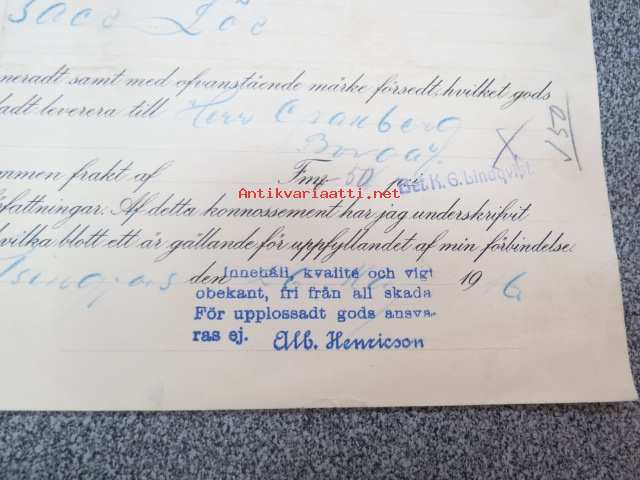 neradt samt med ofvanstående märke försedt, hvilket gods
ladt leverera till Herr Granberg
Borgå
150
mmen frakt af Fmk 50
Antikvariaatti.net
Bef. K. G. Lindqvist.
fattningar. Af detta konnossement har jag underskrifvit
hvilka blott ett är gällande för uppfyllandet af min förbindelse
den 19 16
Innehåll, kvalité och vigt
obekant, fri från all skada
För upplossadt gods ansva-
ras ej. Alb. Henricson